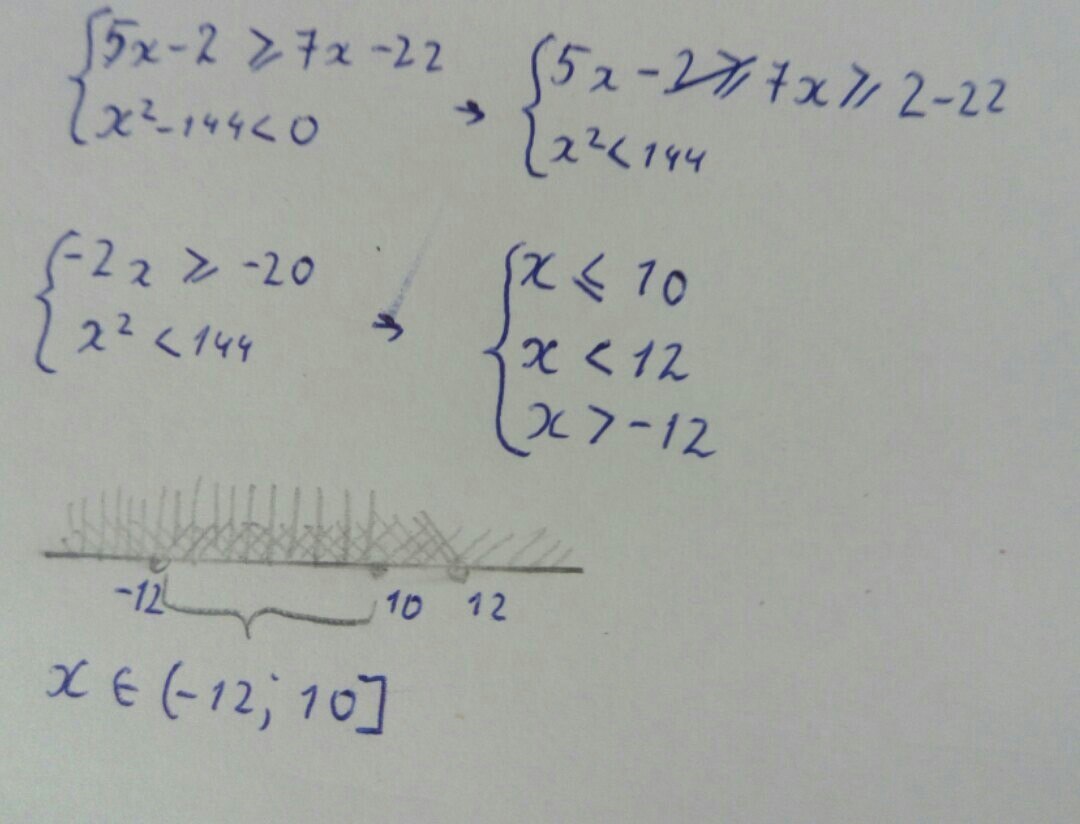 {5x-2 ⩾ 7x-22
{x²-144<0
→ {5x-2⩾7x⩾2-22
{x²<144
{-2x ⩾ -20
{x²<144
→ {x ⩽ 10
x < 12
x > -12
-12 10 12
x ∈ (-12; 10]